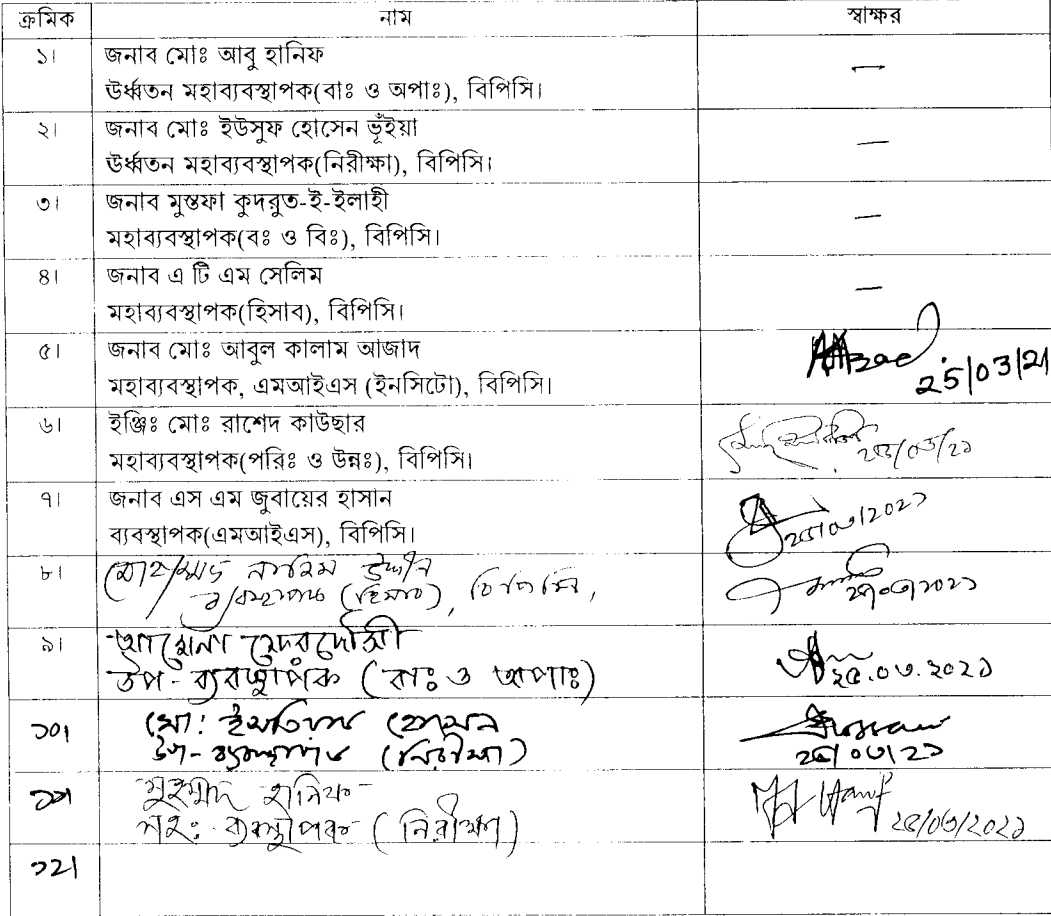 ক্রমিক নাম স্বাক্ষর
১। জনাব মোঃ আবু হানিফ
ঊর্ধ্বতন মহাব্যবস্থাপক(বাঃ ও অপাঃ), বিপিসি।
২। জনাব মোঃ ইউসুফ হোসেন ভূঁইয়া
ঊর্ধ্বতন মহাব্যবস্থাপক(নিরীক্ষা), বিপিসি।
৩। জনাব মুস্তফা কুদরুত-ই-ইলাহী
মহাব্যবস্থাপক(বঃ ও বিঃ), বিপিসি।
৪। জনাব এ টি এম সেলিম
মহাব্যবস্থাপক(হিসাব), বিপিসি।
৫। জনাব মোঃ আবুল কালাম আজাদ
মহাব্যবস্থাপক, এমআইএস (ইনসিটো), বিপিসি।
25/03/21
৬। ইঞ্জিঃ মোঃ রাশেদ কাউছার
মহাব্যবস্থাপক(পরিঃ ও উন্নঃ), বিপিসি।
২৫/০৩/২১
৭। জনাব এস এম জুবায়ের হাসান
ব্যবস্থাপক(এমআইএস), বিপিসি।
২৫/০৩/২০২১
৮। মোহাম্মাদ উদ্দীন
ব্যবস্থাপক (হিসাব), বিপিসি,
২৫/০৩/২০২১
৯। আমেনা ফেরদৌসী
উপ-ব্যবস্থাপক (বাঃ ও অপাঃ)
২৫.০৩.২০২১
১০। মো: ইমতিয়াজ হোসেন
উপ-ব্যবস্থাপক (নিরীক্ষা)
২৫/০৩/২১
১১। মুহম্মদ হানিফ
সহ: ব্যবস্থাপক (নিরীক্ষা)
২৫/০৩/২০২১
১২।